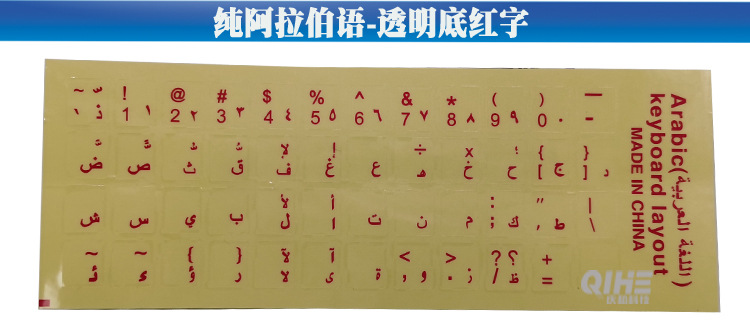 纯阿拉伯语-透明底红字
~ ! @ # $ % ^ & * ( ) —
1 ١ 2 ٢ 3 ٣ 4 ٤ 5 ٥ 6 ٦ 7 ٧ 8 ٨ 9 ٩ 0 ٠ -
÷ x ؛ { }
ض ص ث ق ف غ ع غ خ ح [ ج ] د
لأ أ : " |
ش س ي ب ل ا ت ن م ك ; ط \
~ ~ { } لآ آ < > ? ؟ +
ئ ء ؤ ر لا ى ة و , ز . ظ / =
Arabic( اللغة العربية )
keyboard layout
MADE IN CHINA
QIHE